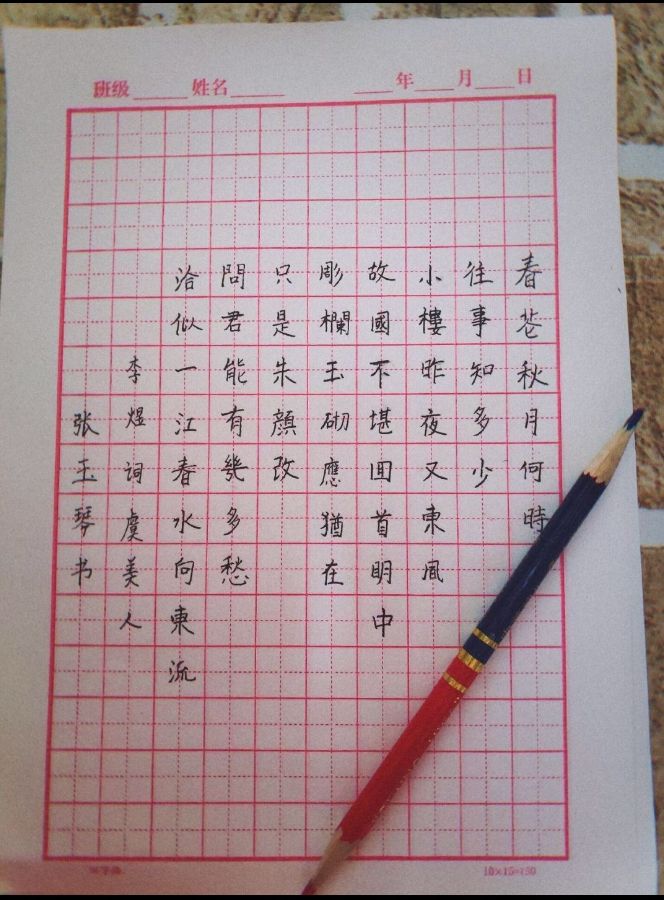 班级 姓名 年 月 日
春花秋月何時
往事知多少
小樓昨夜又東風
故國不堪回首明中
彫欄玉砌應猶在
只是朱顔改
問君能有幾多愁
洽似一江春水向東流
李煜詞虞美人
张玉琴书
10×15=150